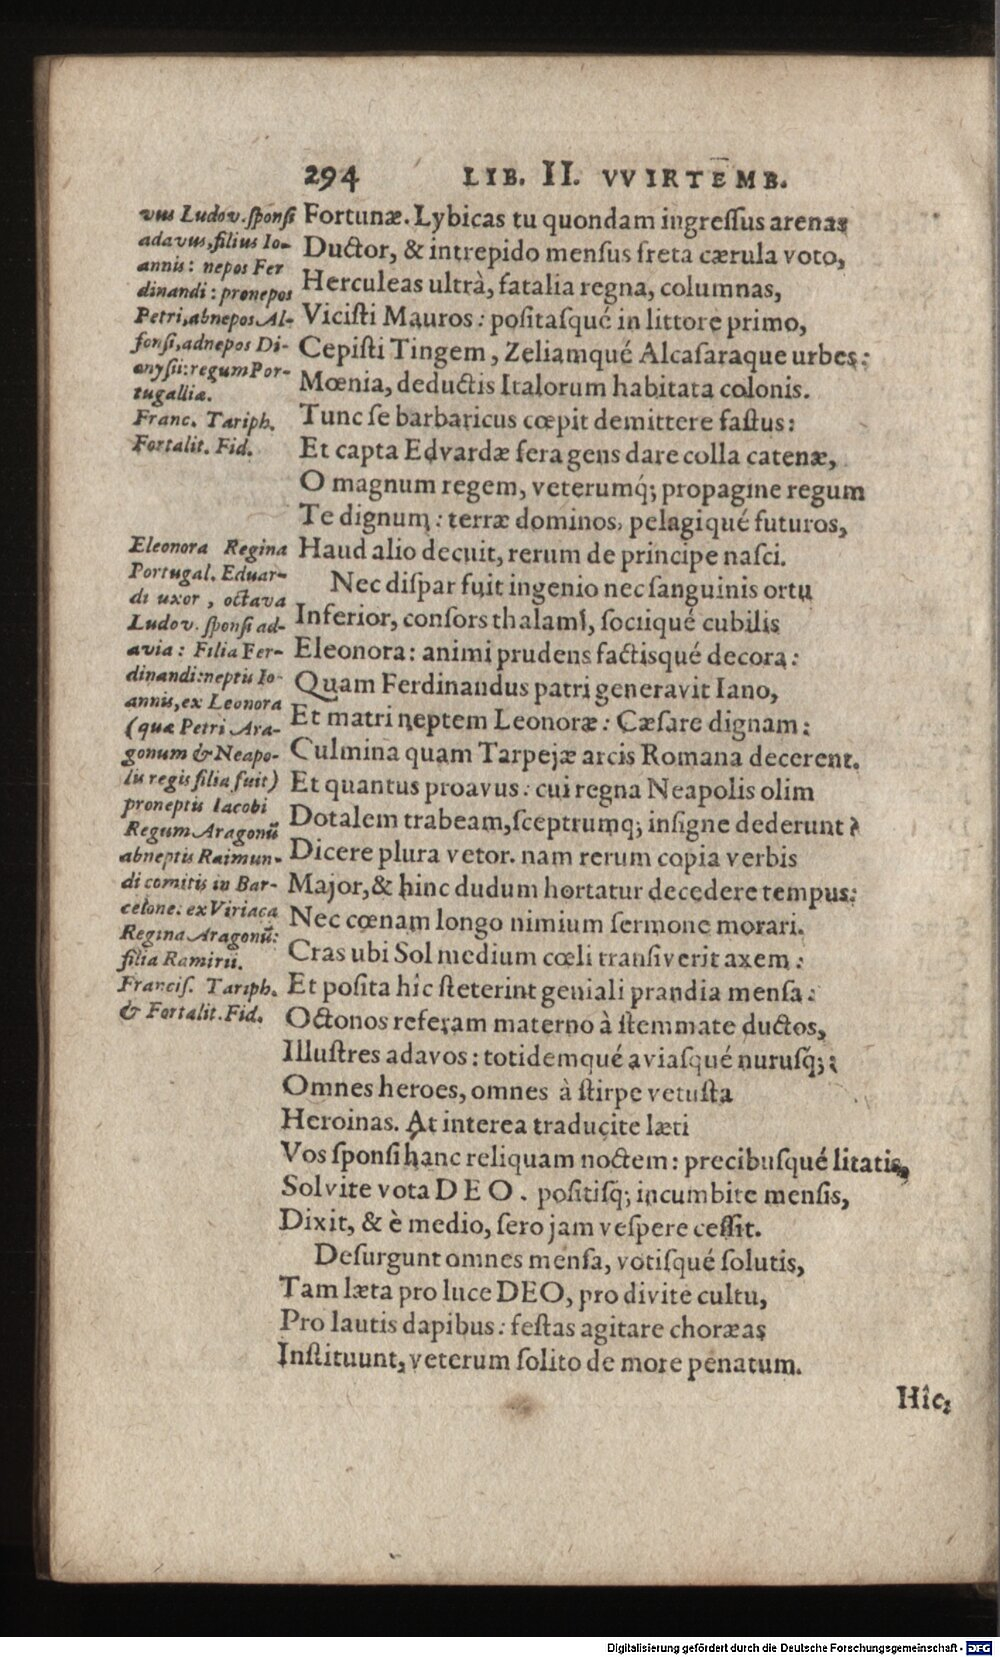 294 LIB. II. VVIRTEMB.
vus Ludov. sponsi
adavus, filius Io-
annis: nepos Fer
dinandi: pronepos
Petri, abnepos Al-
fonsi, adnepos Di-
onysii: regum Por-
tugalliæ.
Franc. Tariph.
Fortalit. Fid.
Eleonora Regina
Portugal. Eduar-
di uxor, octava
Ludov. sponsi ad-
avia: Filia Fer-
dinandi: neptis Io-
annis, ex Leonora
(quæ Petri Ara-
gonum & Neapo-
lis regis filia fuit)
proneptis Iacobi
Regum Aragonū
abneptis Raimun-
di comitis in Bar-
celone: ex Viriaca
Regina Aragonū:
filia Ramirii.
Francis. Tariph.
& Fortalit. Fid.
Fortunæ. Lybicas tu quondam ingressus arenas
Ductor, & intrepido mensus freta cærula voto,
Herculeas ultrà, fatalia regna, columnas,
Vicisti Mauros: positasqué in littore primo,
Cepisti Tingem, Zeliamqué Alcasaraque urbes:
Mœnia, deductis Italorum habitata colonis.
Tunc se barbaricus cœpit demittere fastus:
Et capta Edvardæ fera gens dare colla catenæ,
O magnum regem, veterumq́; propagine regum
Te dignum: terræ dominos, pelagiqué futuros,
Haud alio decuit, rerum de principe nasci.
Nec dispar fuit ingenio nec sanguinis ortu
Inferior, consors thalami, sociiqué cubilis
Eleonora: animi prudens factisqué decora:
Quam Ferdinandus patri generavit Iano,
Et matri neptem Leonoræ: Cæsare dignam:
Culmina quam Tarpejæ arcis Romana decerent.
Et quantus proavus: cui regna Neapolis olim
Dotalem trabeam, sceptrumq; insigne dederunt?
Dicere plura vetor. nam rerum copia verbis
Major, & hinc dudum hortatur decedere tempus:
Nec cœnam longo nimium sermone morari.
Cras ubi Sol medium cœli transiverit axem:
Et posita hîc steterint genialí prandia mensa:
Octonos referam materno à stemmate ductos,
Illustres adavos: totidemqué aviasqué nurusq́;:
Omnes heroes, omnes à stirpe vetusta
Heroinas. At interea traducite læti
Vos sponsi hanc reliquam noctem: precibusqué litatis,
Solvite vota DEO. positisq; incumbite mensis,
Dixit, & è medio, sero jam vespere cessit.
Desurgunt omnes mensa, votisqué solutis,
Tam læta pro luce DEO, pro divite cultu,
Pro lautis dapibus: festas agitare choræas
Instituunt, veterum solito de more penatum.
Hîc,
Digitalisierung gefördert durch die Deutsche Forschungsgemeinschaft - DFG